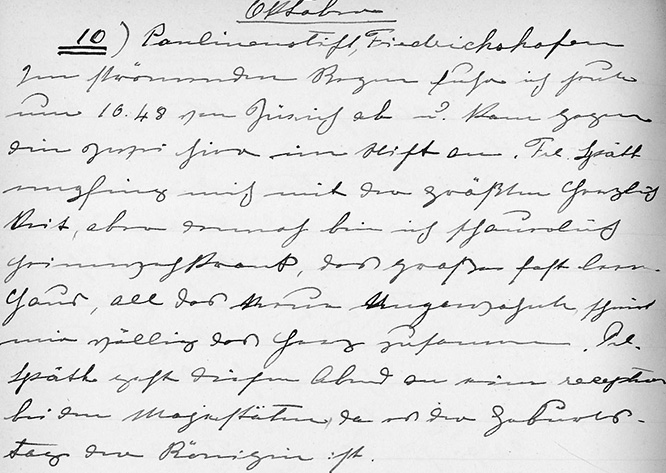 Oktober
10) Paulinenstift, Friedrichshafen
Im strömenden Regen fuhr ich heute
um 10.48 von Zürich ab u. kam gegen
drei hier im Stift an. Frl. Späth
empfing mich mit der größten Herzlich
keit, aber dennoch bin ich schauerlich
heimwehkrank, das große fast leere
Haus, all das Neue Ungewohnte schnürt
mir völlig das Herz zusammen. Frl.
Späth geht diesen Abend zu einer reception
bei den Majestäten, da es der Geburts-
tag der Königin ist.